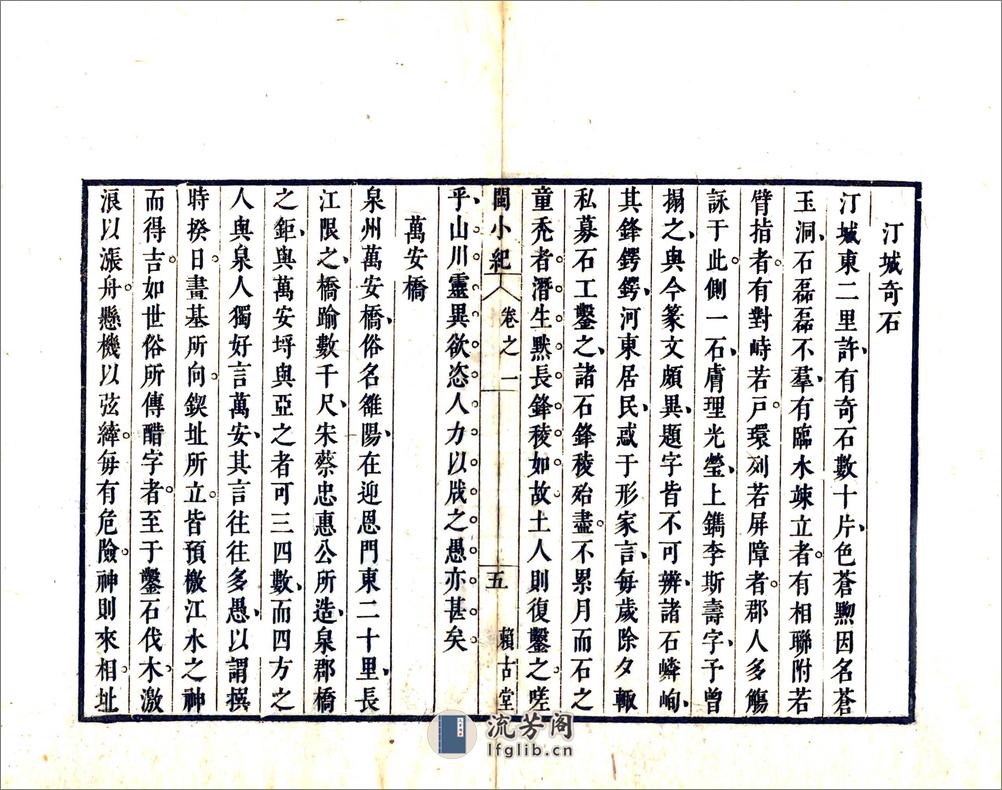 汀城奇石
汀城東二里許、有奇石數十片、色蒼黝因名蒼
玉洞、石磊磊不羣、有臨水竦立者。有相聯附若
臂指者。有對峙若戸。環列若屏障者。郡人多觴
詠于此。側一石、膚理光瑩、上鐫李斯壽字、予曾
搨之、與今篆文頗異、題字皆不可辨、諸石嶙峋、
其鋒鍔鍔、河東居民、惑于形家言、每歲除夕輒
私募石工鑿之、諸石鋒稜殆盡。不累月而石之
童禿者。潛生黙長。鋒稜如故。土人則復鑿之。嗟
乎。山川靈異。欲恣人力以戕之。愚亦甚矣。
萬安橋
泉州萬安橋、俗名雒陽、在迎恩門東二十里、長
江限之、橋踰數千尺、宋蔡忠惠公所造、泉郡橋
之鉅、與萬安埒與亞之者可三四數、而四方之
人與泉人獨好言萬安、其言往往多愚、以謂撰
時揆日。畫基所向。鍥址所立。皆預檄江水之神
而得吉。如世俗所傳醋字者。至于鑿石伐木。激
浪以漲舟。懸機以弦縴。每有危險。神則來相址
閩小紀
卷之一
五
賴古堂
流芳阁
lfglib.cn